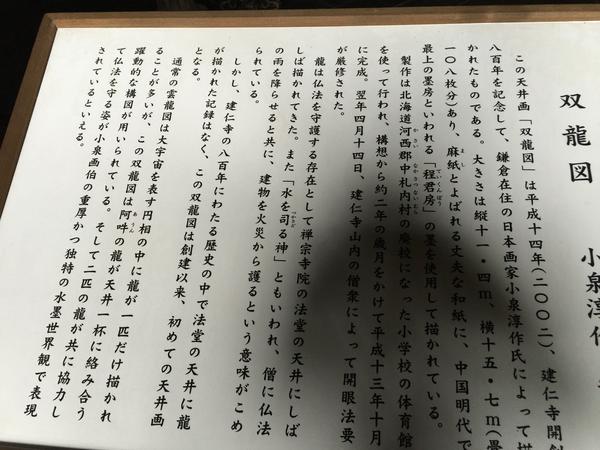 双龍図
小泉淳作
この天井画「双龍図」は平成十四年(二〇〇二)、建仁寺開創
八百年を記念して、鎌倉在住の日本画家小泉淳作氏によって描
かれたものである。大きさは縦十一・四m、横十五・七m(畳
一〇八枚分)あり、麻紙とよばれる丈夫な和紙に、中国明代で
最上の墨房といわれる「程君房」の墨を使用して描かれている。
製作は北海道河西郡中札内村の廃校になった小学校の体育館
を使って行われ、構想から約二年の歳月をかけて平成十三年十月
に完成。翌年四月十四日、建仁寺山内の僧衆によって開眼法要
が厳修された。
龍は仏法を守護する存在として禅宗寺院の法堂の天井にしば
しば描かれてきた。また「水を司る神」ともいわれ、僧に仏法
の雨を降らせると共に、建物を火災から護るという意味がこめ
られている。
しかし、建仁寺の八百年にわたる歴史の中で法堂の天井に龍
が描かれた記録はなく、この双龍図は創建以来、初めての天井画
となる。
通常の雲龍図は大宇宙を表す円相の中に龍が一匹だけ描かれ
ることが多いが、この双龍図は阿吽の龍が天井一杯に絡み合う
躍動的な構図が用いられている。そして二匹の龍が共に協力し
て仏法を守る姿が小泉画伯の重厚かつ独特の水墨世界観で表現
されているといえる。